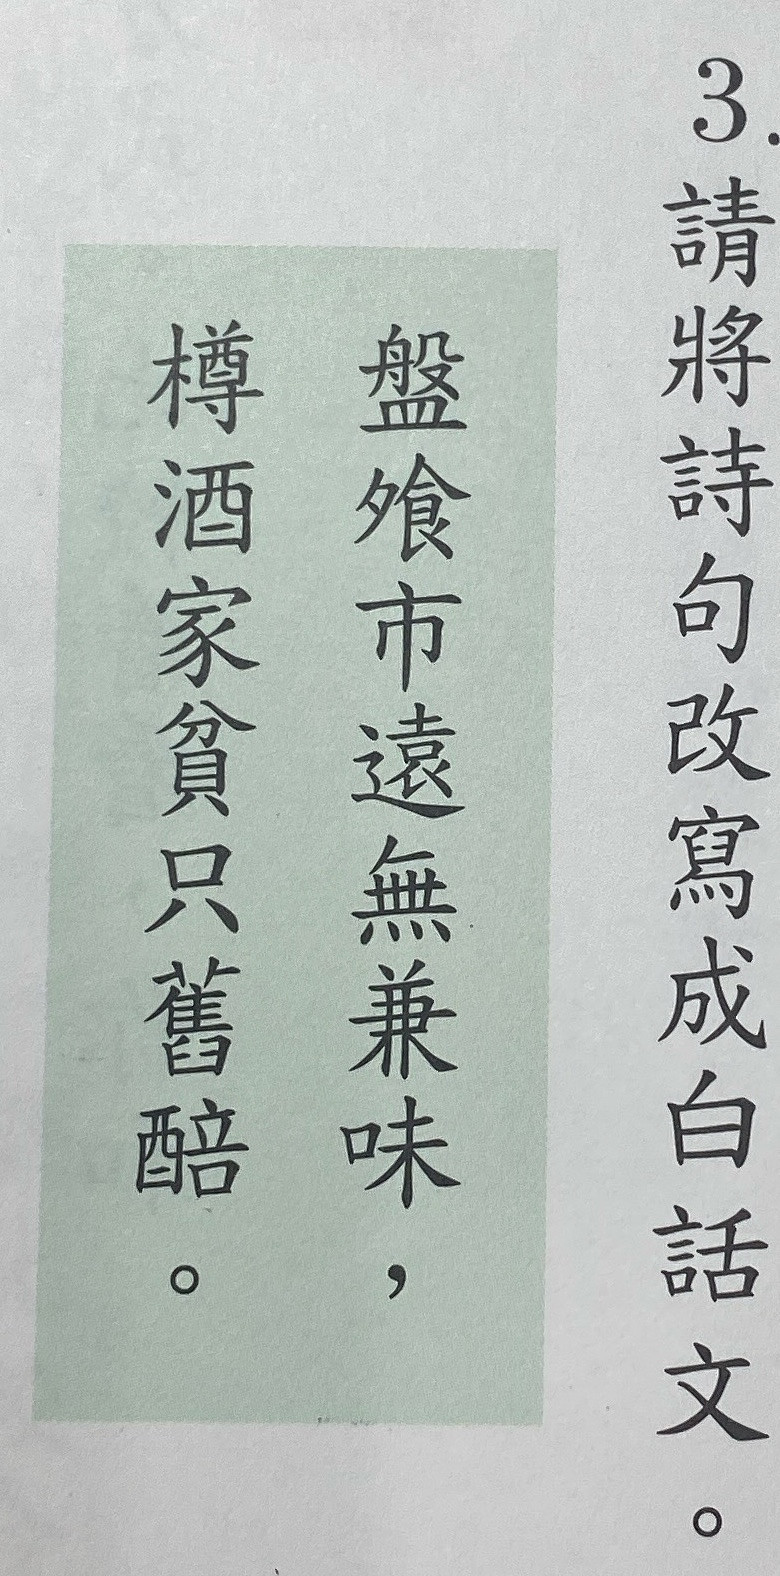 3.請將詩句改寫成白話文。
盤飧市遠無兼味,
樽酒家貧只舊醅。